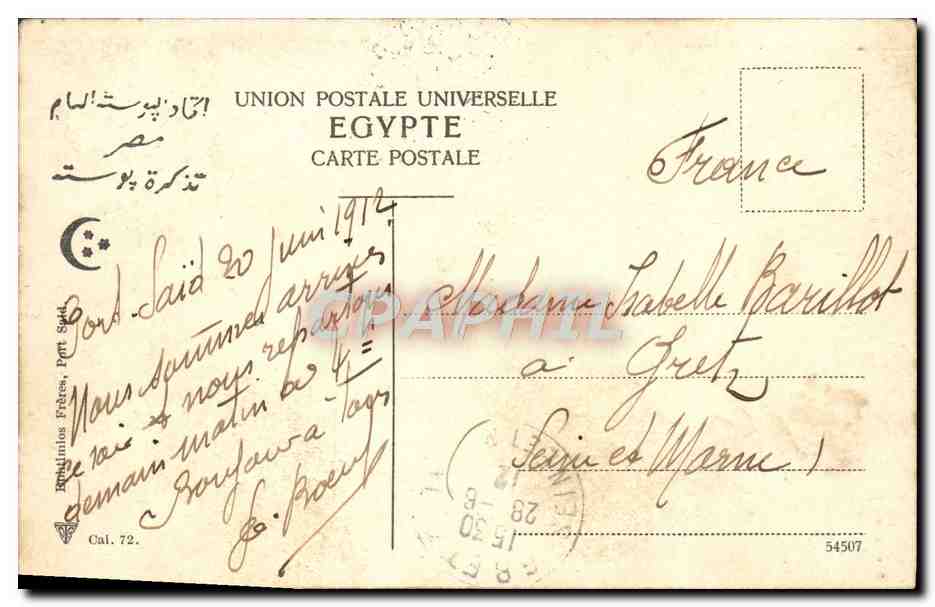 اتحاد پوسته العام
مصر
تذكرة پوسته
UNION POSTALE UNIVERSELLE
EGYPTE
CARTE POSTALE
France
Port-Saïd 20 Juin 1912
Nous sommes arrivés
ce soir & nous repartons
demain matin à 4 h
Bonjour à tous
Madame Isabelle Barillot
à Gretz
Seine et Marne
CPAPHIL
Ephtimios Frères, Port Said.
Cai. 72.
54507
15 30
28 - 6
12
SEINE ET